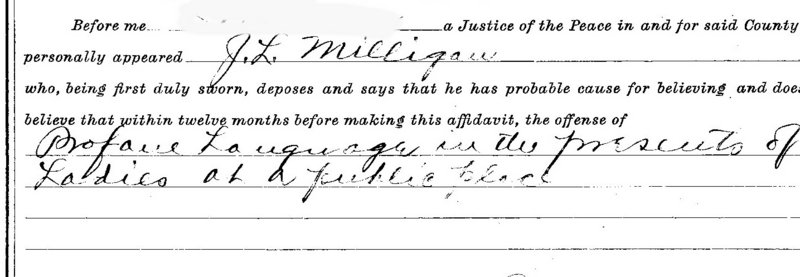 Before me a Justice of the Peace in and for said County
personally appeared J. L. Milligan
who, being first duly sworn, deposes and says that he has probable cause for believing and does
believe that within twelve months before making this affidavit, the offense of
Profane Language in the presents of
Ladies at a public place